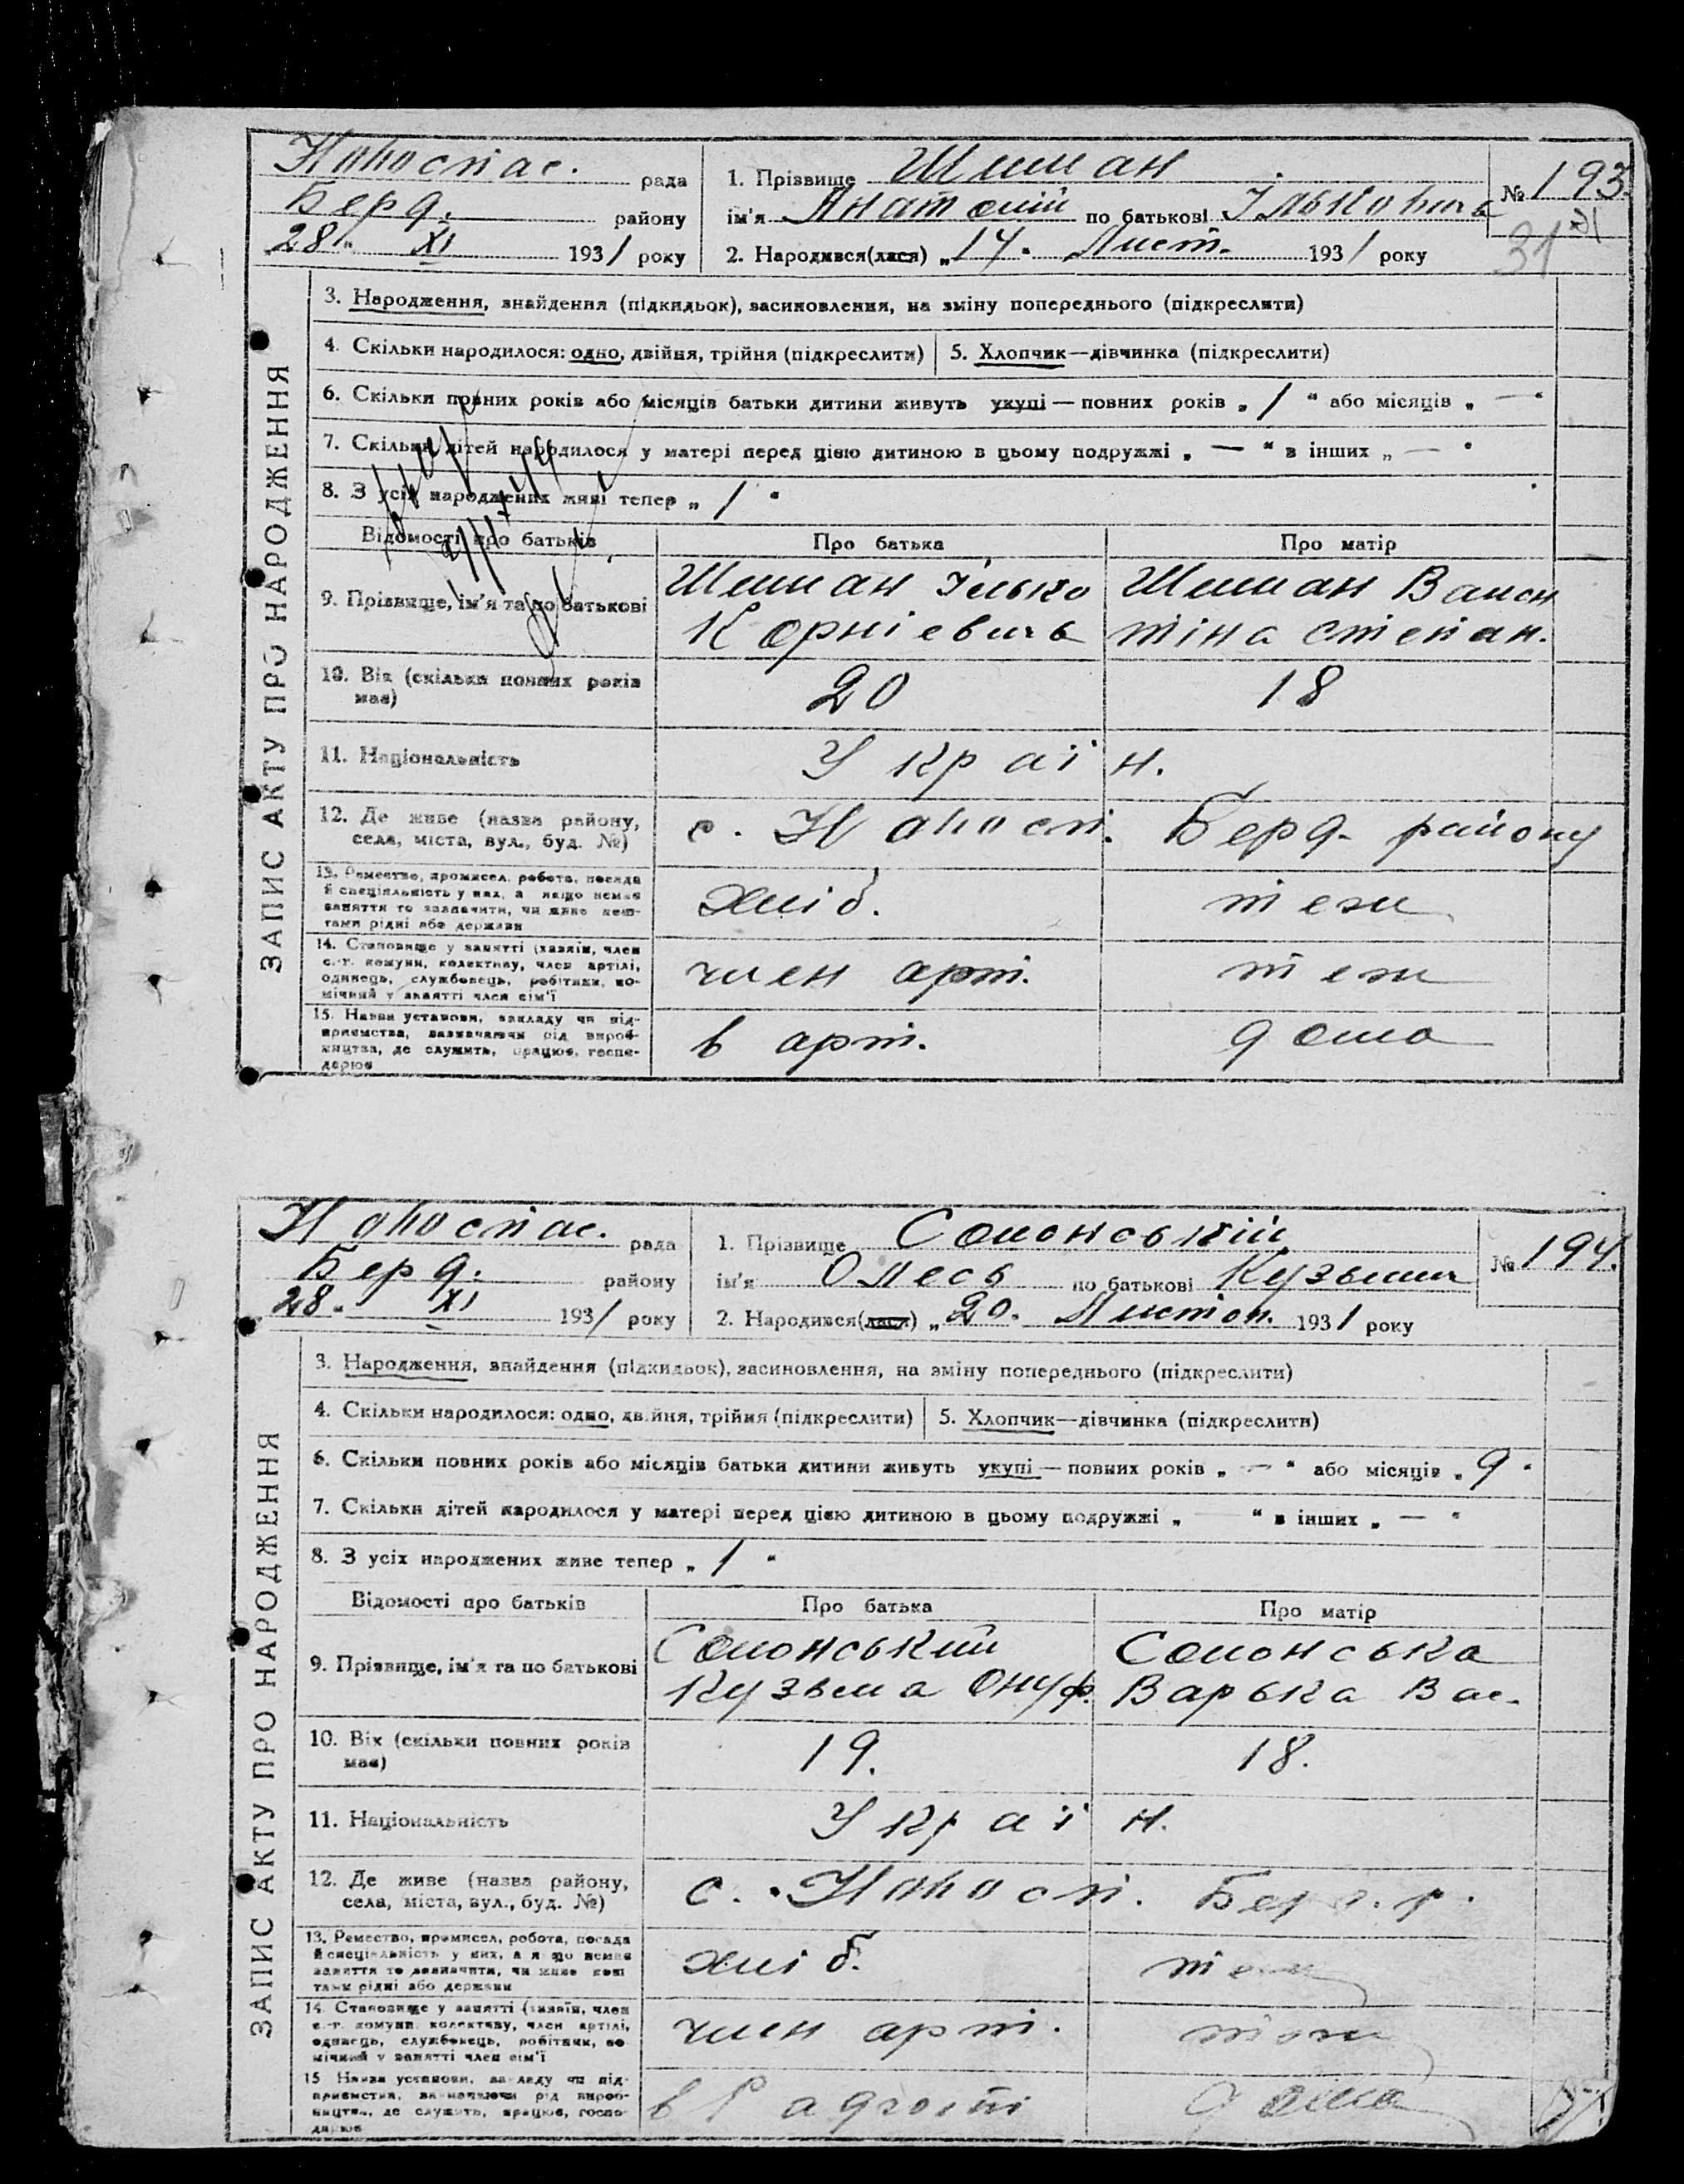 Новоспас. рада
Берд. району
28. XI 1931 року
1. Прізвище Шиман
ім'я Анатолій по батькові Ількович
№ 193.
31
2. Народився(лася) „14" Лист. 1931 року
ЗАПИС АКТУ ПРО НАРОДЖЕННЯ
3. Народження, знайдення (підкидьок), засиновлення, на зміну попереднього (підкреслити)
4. Скільки народилося: одно, двійня, трійня (підкреслити)
5. Хлопчик—дівчинка (підкреслити)
6. Скільки повних років або місяців батьки дитини живуть укупі — повних років „ 1 " або місяців „ — "
7. Скільки дітей народилося у матері перед цією дитиною в цьому подружжі „ — " в інших „ — "
8. З усіх народжених живі тепер „ 1 "
Відомості про батьків
Про батька
Про матір
9. Прізвище, ім'я та по батькові
Шиман Ілько
Корнієвич
Шиман Вален
тіна Степан.
10. Вік (скільки повних років
має)
20
18
11. Національність
Україн.
12. Де живе (назва району,
села, міста, вул., буд. №)
с. Новосп. Берд. району
13. Ремество, промисел, робота, посада
й спеціяльність у них, а якщо немає
заняття то зазначити, чи живе кош-
тами рідні або держави
хліб.
теж
14. Становище у занятті (хазяїн, член
с.-г. комуни, колективу, член артілі,
одинець, службовець, робітник, по-
мічний у занятті член сім'ї
член арт.
теж
15. Назва установи, закладу чи під-
приємства, зазначаючи рід вироб-
ництва, де служить, працює, госпо-
дарює
в арт.
дома
Новоспас. рада
Берд. району
28. XI 1931 року
1. Прізвище Солонський
ім'я Олесь по батькові Кузьмич
№ 194.
2. Народився(лася) „20" Листоп. 1931 року
ЗАПИС АКТУ ПРО НАРОДЖЕННЯ
3. Народження, знайдення (підкидьок), засиновлення, на зміну попереднього (підкреслити)
4. Скільки народилося: одно, двійня, трійня (підкреслити)
5. Хлопчик—дівчинка (підкреслити)
6. Скільки повних років або місяців батьки дитини живуть укупі — повних років „ — " або місяців „ 9 "
7. Скільки дітей народилося у матері перед цією дитиною в цьому подружжі „ " в інших „ — "
8. З усіх народжених живе тепер „ 1 "
Відомості про батьків
Про батька
Про матір
9. Прізвище, ім'я та по батькові
Солонський
Кузьма Онуф.
Солонська
Варька Вас.
10. Вік (скільки повних років
має)
19.
18.
11. Національність
Україн.
12. Де живе (назва району,
села, міста, вул., буд. №)
с. Новосп. Берд. р.
13. Ремество, промисел, робота, посада
й спеціяльність у них, а якщо немає
заняття то зазначити, чи живе кош
тами рідні або держави
хліб.
теж
14. Становище у занятті (хазяїн, член
с.-г. комуни, колективу, член артілі,
одинець, службовець, робітник, по-
мічний у занятті член сім'ї
член арт.
теж
15. Назва установи, закладу чи під-
приємства, зазначаючи рід вироб-
ництва, де служить, працює, госпо-
дарює
в
дома